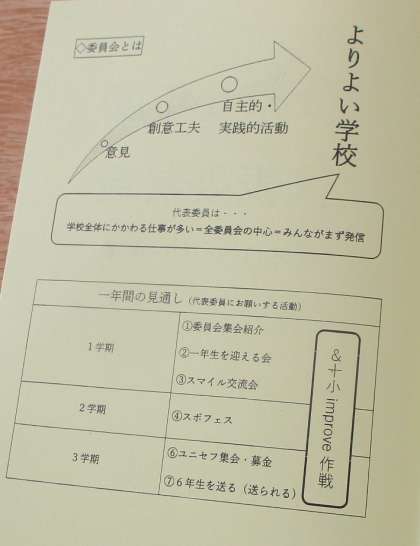 ◇委員会とは
よりよい学校
自主的・
実践的活動
創意工夫
意見
代表委員は・・・
学校全体にかかわる仕事が多い＝全委員会の中心＝みんながまず発信
一年間の見通し（代表委員にお願いする活動）
１学期
①委員会集会紹介
②一年生を迎える会
③スマイル交流会
２学期
④スポフェス
３学期
⑥ユニセフ集会・募金
⑦６年生を送る（送られる）
＆十小 improve 作戦